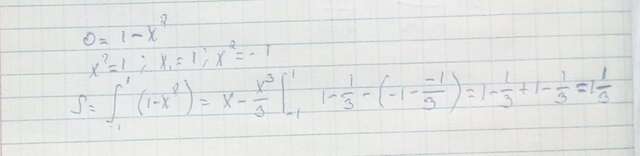 0 = 1 - x²
x² = 1 ; x₁ = 1 ; x² = -1
S = ∫₋₁¹ (1-x²) = x - x³/3 |₋₁¹ 1 - 1/3 - (-1 - -1/3) = 1 - 1/3 + 1 - 1/3 = 1 1/3